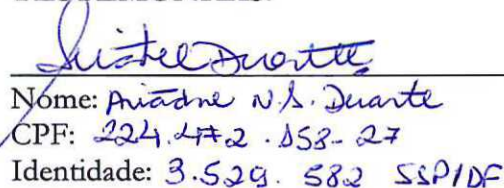 Nome: Ariadne N.S. Duarte
CPF: 224.472.158-27
Identidade: 3.529.582 SSP/DF